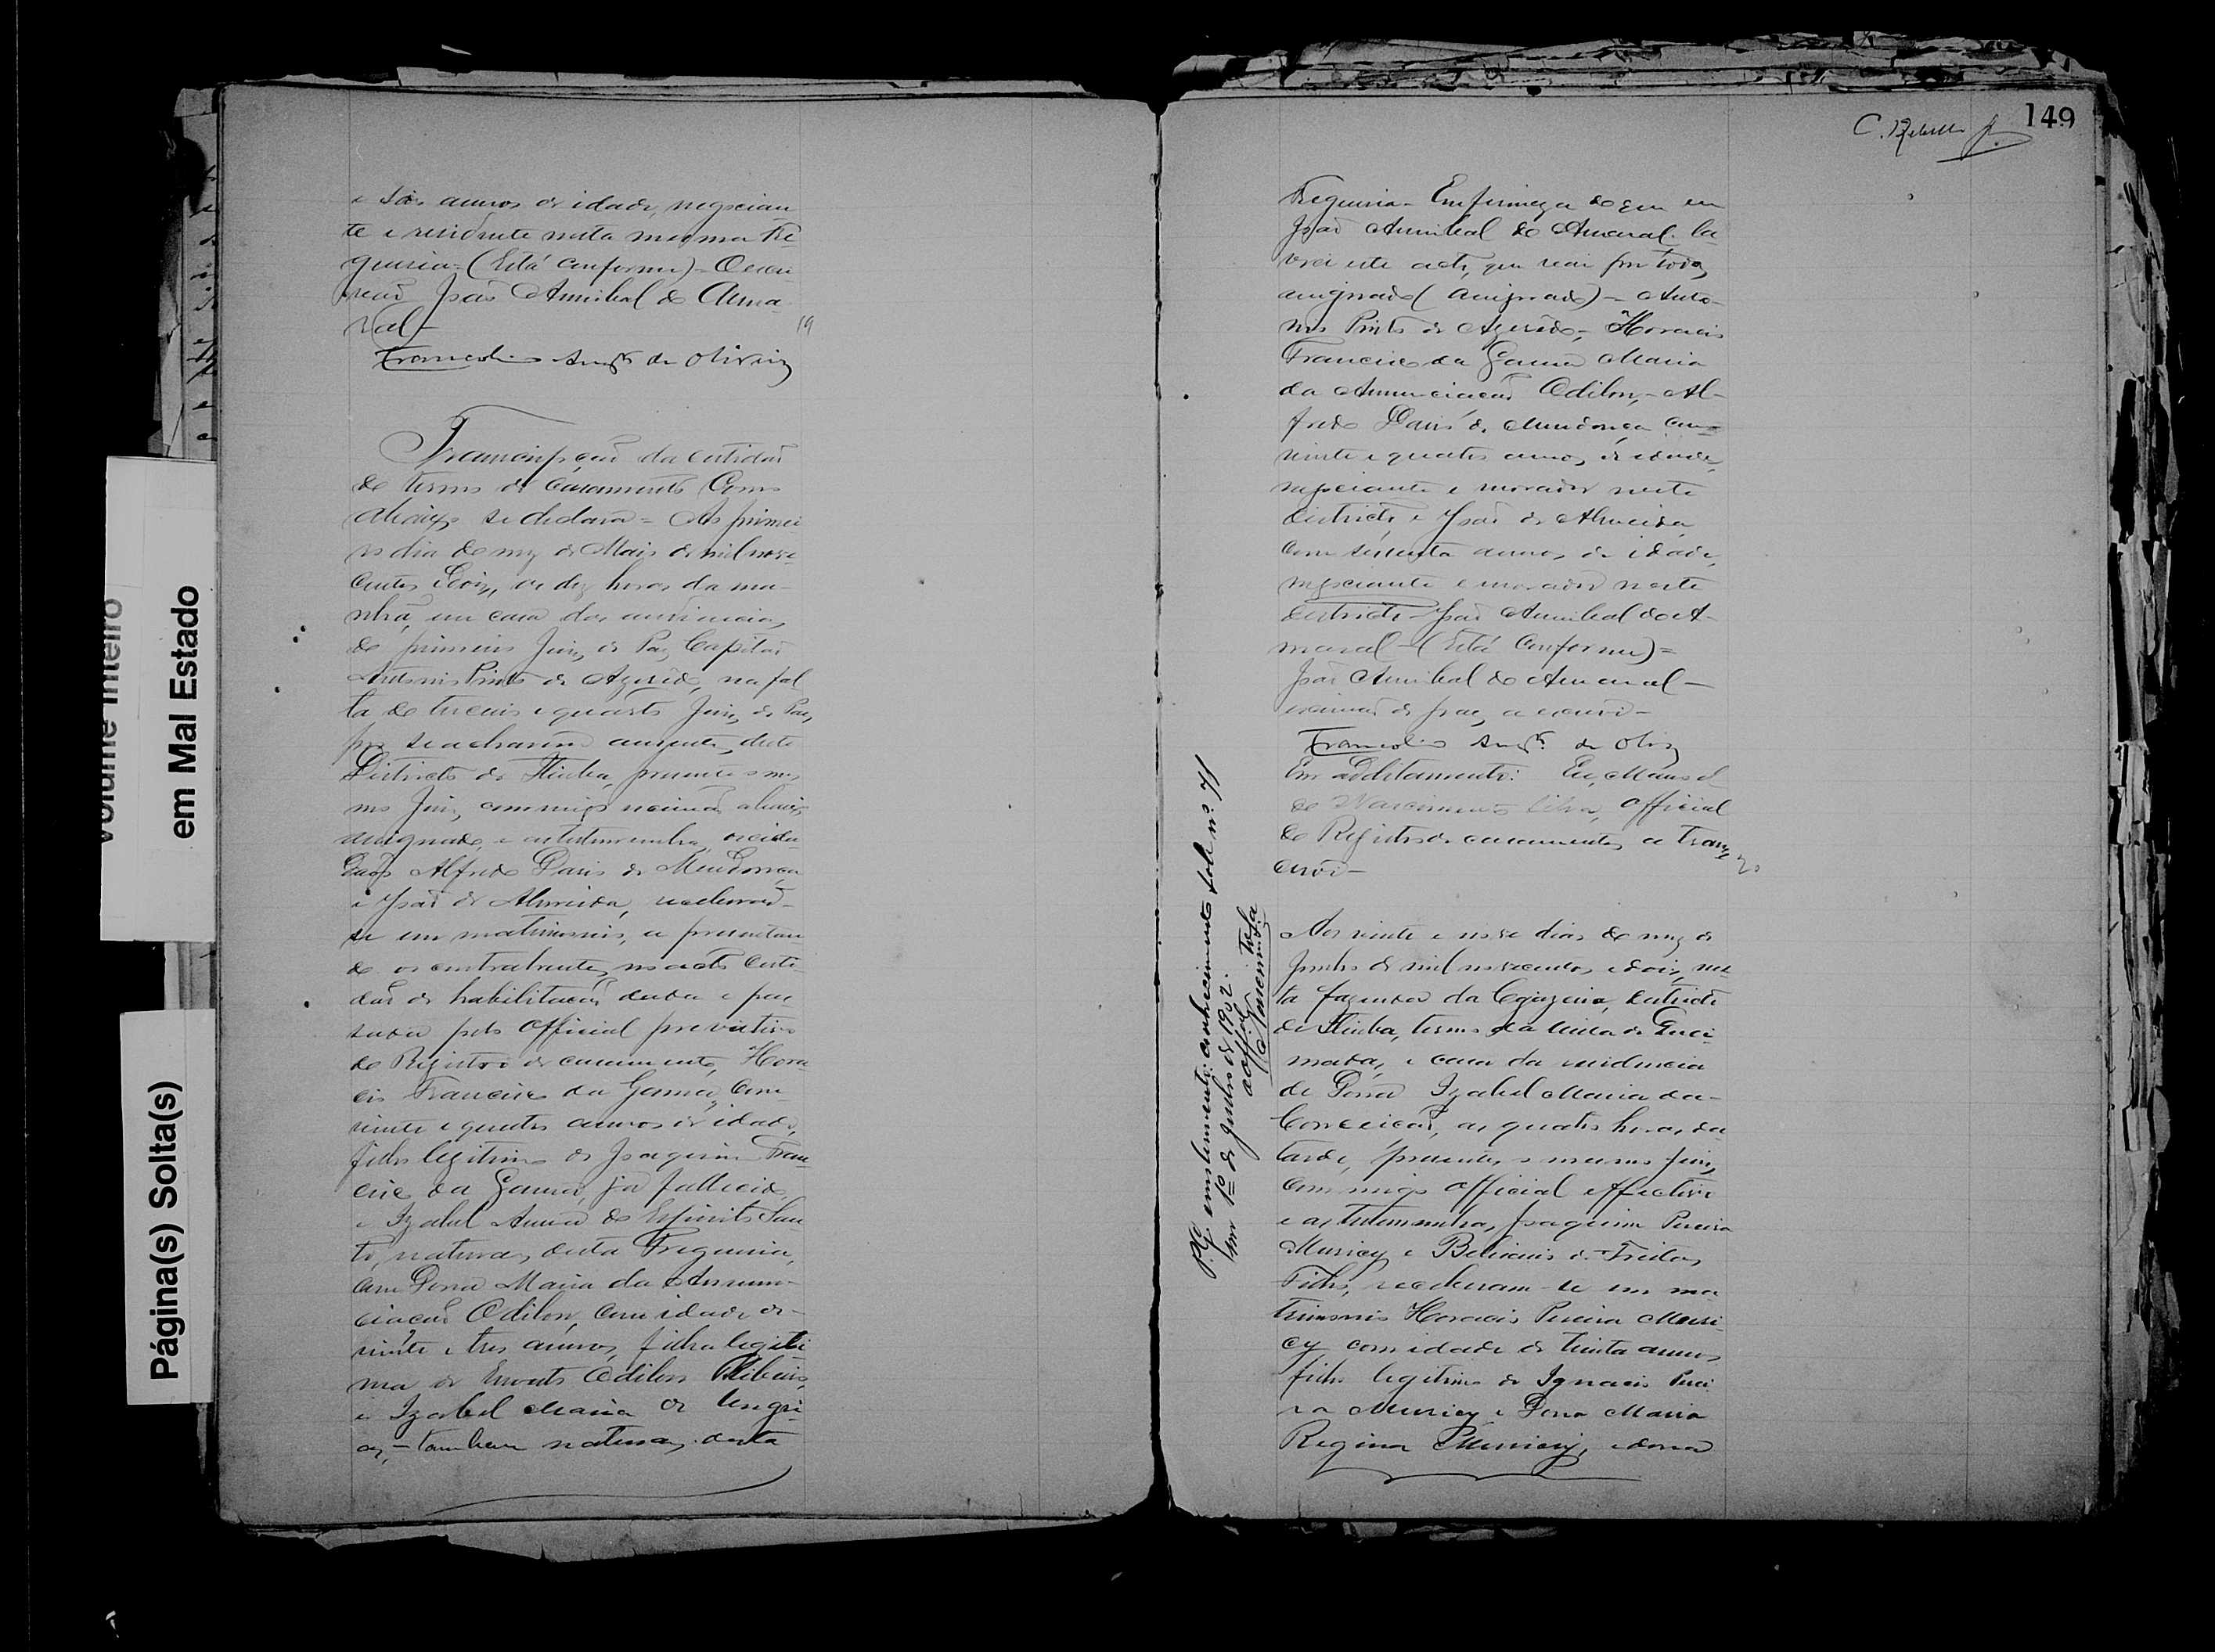 Volume Inteiro
em Mal Estado
Página(s) Solta(s)
e dois annos de idade, negocian
te e residente nesta mesma Fre
guesia = (Está conforme) - O escri
vão João Annibal do Ama
ral -
19
Francolino Augto de Oliveira
Transcripção da certidão
de termo de casamento como
abaixo se declara = Ao primei
ro dia do mez de Maio de mil nove
centos e dois, as dez horas da ma-
nhã, em casa das audiencias
do primeiro Juiz de Paz Capitão
Antonio Pinto de Azevêdo, na fal
ta de terceiro e quarto Juiz de Paz,
por se acharem ausentes deste
Districto de Itiuba, presente o mes
mo Juiz, commigo escrivão abaixo
assignado, e as testemunhas, os cida
dãos Alfredo Paris de Mendonça
e João de Almeida, receberão-
se em matrimonio, e apresentan
do os contrahentes no acto certi
dão de habilitação dada e pas
sada pelo Official privativo
do Registro de casamento, Hora
cio Francisco da Gama, com
vinte e quatro annos de idade,
filho legitimo de Joaquim Fran
cisco da Gama, já fallecido,
e Izabel Anna do Espirito San
to, naturaes desta Freguesia,
com Dona Maria da Annun
ciação Odilon, com idade de
vinte e tres annos, filha legiti
ma de Odilon Ribeiro,
e Izabel Maria de
tambem naturaes desta
149
C. Rebello Jr.
Freguesia - Em firmeza do que eu
João Annibal do Amaral la
vrei este acto, que vai por todos
assignado (assignados) - Anto-
nio Pinto de Azevêdo, - Horacio
Francisco da Gama Maria
da Annunciação Odilon, - Al-
fredo Paris de Mendonça com
vinte e quatro annos de idade,
negociante e morador neste
districto, e João de Almeida,
com sessenta annos de idade,
negociante e morador neste
districto - João Annibal do A-
maral - (Está conforme) =
João Annibal do Amaral -
escrivão de paz, a escrevi -
Francolino Augto de Olivª
Em additamento: Eu, Manoel
do Nascimento Silva, Official
do Registro de casamentos a trans
crevi -
Aos vinte e nove dias do mez de
Junho de mil novecentos e dois, nes
ta fazenda da Cajazeira, districto
de Itiuba, termo da Villa de Quei
madas, e casa da residencia
de Dona Izabel Maria da
Conceição, as quatro horas da
tarde, presentes o mesmo Juiz,
commigo official effectivo
e as testemunhas, Joaquim Pereira
Muricy e Belizario de Freitas
Filho, receberam-se em ma
trimonio Horacio Pereira Muri
cy, com idade de trinta annos,
filho legitimo de Ignacio Perei
ra Muricy e Dona Maria
Regina Muricy, e dona
Pg emolumento: conhecimento sob nº 71
em 1º de Julho de 1902.
O official
Nascimento Silva